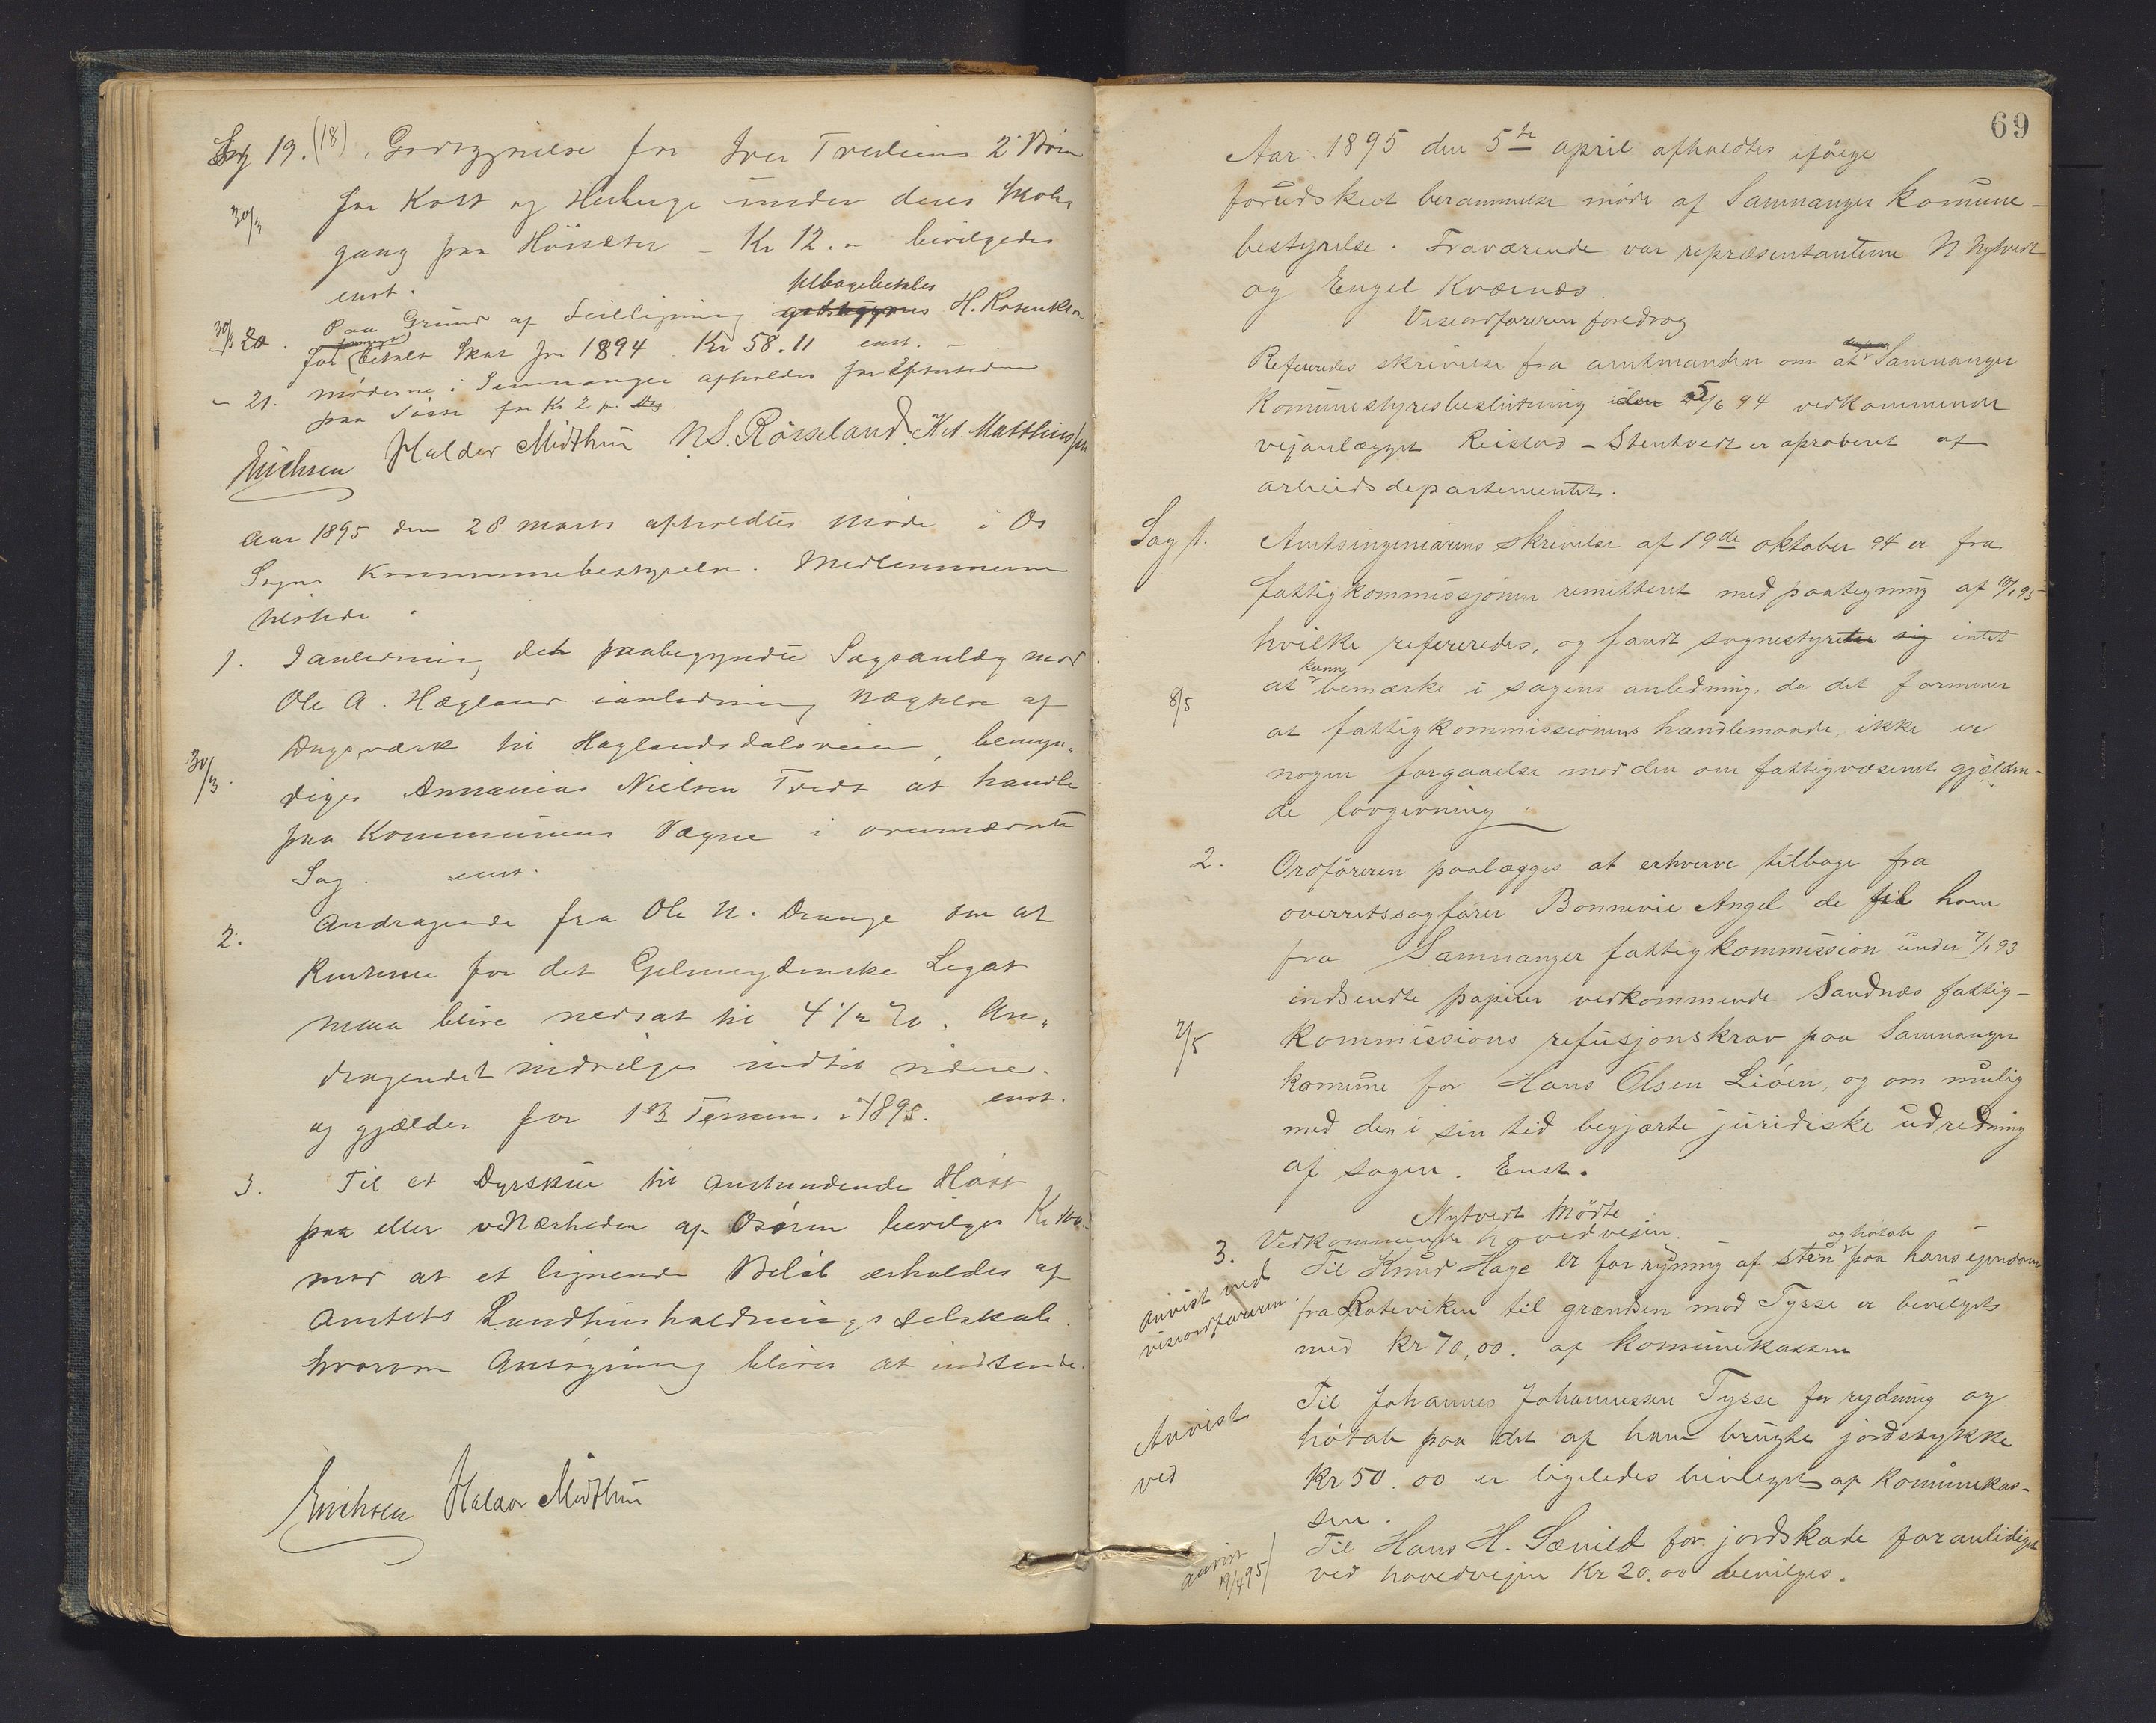 Sag 19. (18). Godtgjørelse for Iver Tveiteens 2 Børn
30/3
for Kost og Herberge under deres Skole-
gang paa Hörsæter – Kr 12.– bevilgedes
enst.
30/3 20. Paa Grund af Feilligning tilbagebetales godtgjøres H. Rosenkr.
for betalt Skat for 1894 Kr 58.11 enst. –
– 21. møderne i Samnanger afholdes for Eftertiden
paa Tösse for Kr 2 pr. Dag
Erichsen Haldor Midthun N S. Røsseland.
Aar 1895 den 28 marts afholdtes Möde i Os
Sogns Kommunebestyrelse. Medlemmerne
tilstede.
1. I anledning det paabegyndte Sagsanlæg mod
Ole A. Hægland ianledning Nægtelse af
Dugsværk til Hæglandsdalsveien, bemyn-
30/3.
diges Annanias Nielsen Tvedt at handle
paa Kommunens Vegne i ovennævnte
Sag. enst.
2. Andragende fra Ole N. Drange om at
Renterne for det Gjelmeydenske Legat
maa blive nedsat til 4 1/2 %. An-
dragendet indvilges indtil videre.
og gjælder for 1ste Termin i 1895. enst.
3. Til et Dyrskue til anstundende Höst
paa eller ved Nærheden af Osören bevilges Kr 100.
mod at et lignende Belöb erholdes af
Amtets Landhusholdningsselskab.
hvorom Ansøgning bliver at indsende.
Erichsen Haldor Midthun
69
Aar 1895 den 5te april afholdtes ifölge
forudskeet berammelse möde af Samnanger Komune-
bestyrelse. Fraværende var repræsentanterne N Nytvedt
og Engel Kværnæs.
Viseordföreren foredrog
Refereredes skrivelse fra amtmanden om at Samnanger
Komunestyresbeslutning 5/6 94 vedkommende
vejanlægget Reistad – Stenkvedt er aproberet af
arbeidsdepartementet.
Sag 1. Amtsingeniørens skrivelse af 19de oktober 94 er fra
fattigkommissjonen remitteret med paategning af
hvilke refereredes, og fandt sognestyret sig intet
at kunne bemærke i sagens anledning, da det formener
8/5
at fattigkommissionens handlemaade, ikke er
nogen forgaaelse mod den om fattigvæsenet gjælden-
de lovgivning.
2. Ordföreren paalægges at erhverve tilbage fra
overretssagförer Bonnevie Angel de til ham
fra Samnanger fattigkommission under 7/1 93
indsendte papirer vedkommende Sandnæs fattig-
7/5
kommissions refusjonskrav paa Samnanger
komune for Hans Olsen Liöen, og om mulig
med den i sin tid begjærte juridiske udredning
af sagen. Enst.
Nytvedt Mödte
3. Vedkommende hovedvejen.
Til Knud Hage er for rydning af sten og hötab paa hans ejendom
Anvist ved
viseordföreren.
fra Roteviken til grændsen mod Tysse er bevilget
med kr 70,00. af komunekassen
Til Johannes Johannessen Tysse for rydning og
Anvist
ved
hötab paa det af ham brugte jordstykke
Kr 50.00 er ligeledes bevilget af komunekas-
sen.
Til Hans H. Sævild for jordskade foranlediget
anvist
19/4 95
ved hovedvejen Kr 20.00 bevilges.